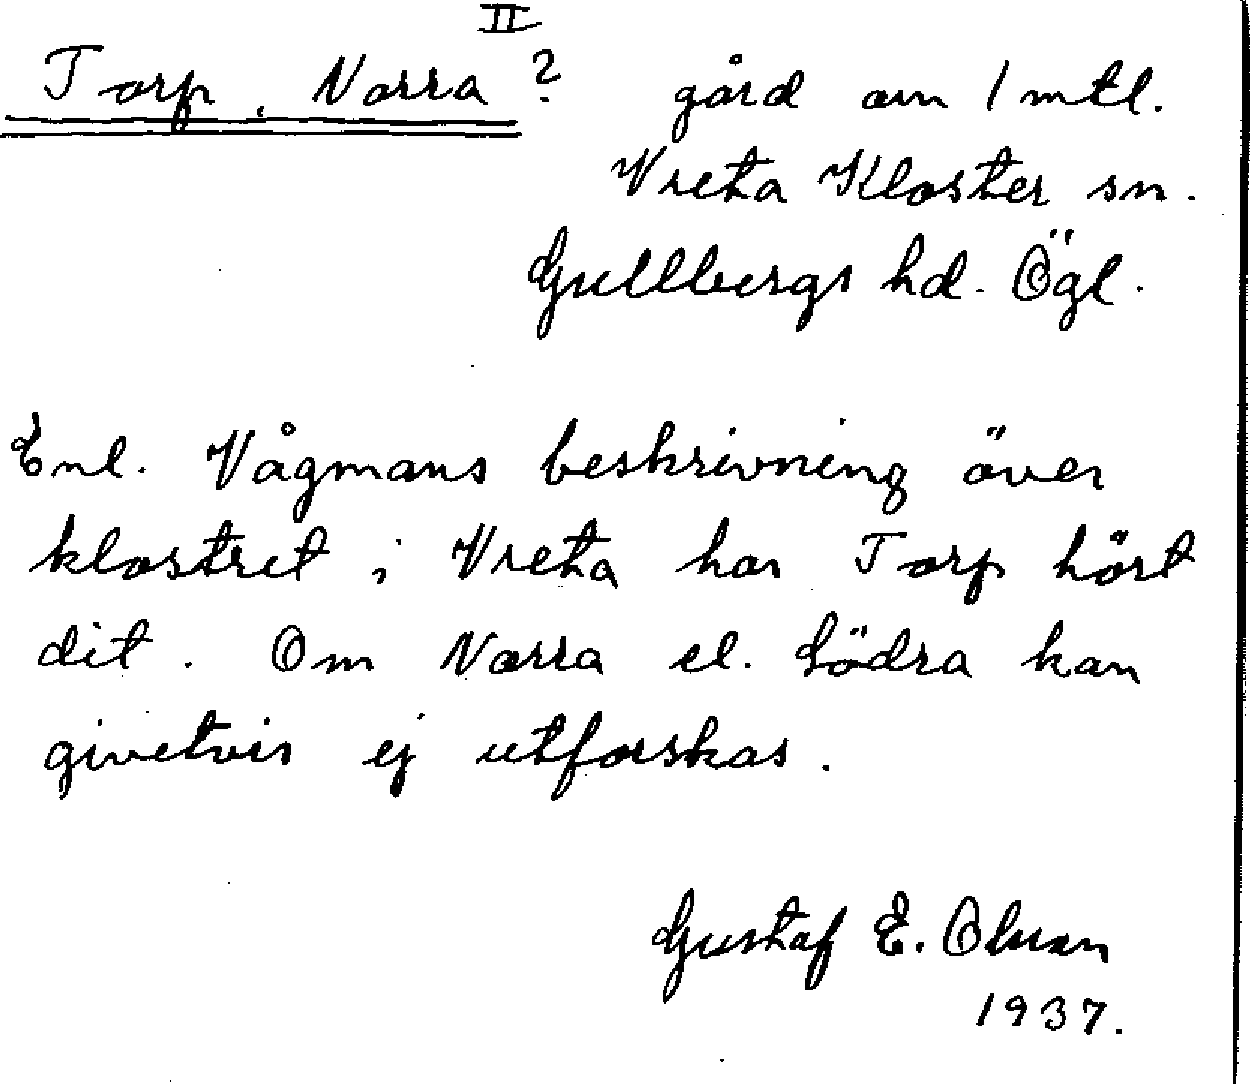 II
Torp, Norra ? gård om 1 mtl.
Vreta Kloster sn.
Gullbergs hd. Ögl.
Enl. Vågmans beskrivning över
klostret i Vreta har Torp hört
dit. Om Norra el. Södra kan
givetvis ej utforskas.
Gustaf E. Olsson
1937.